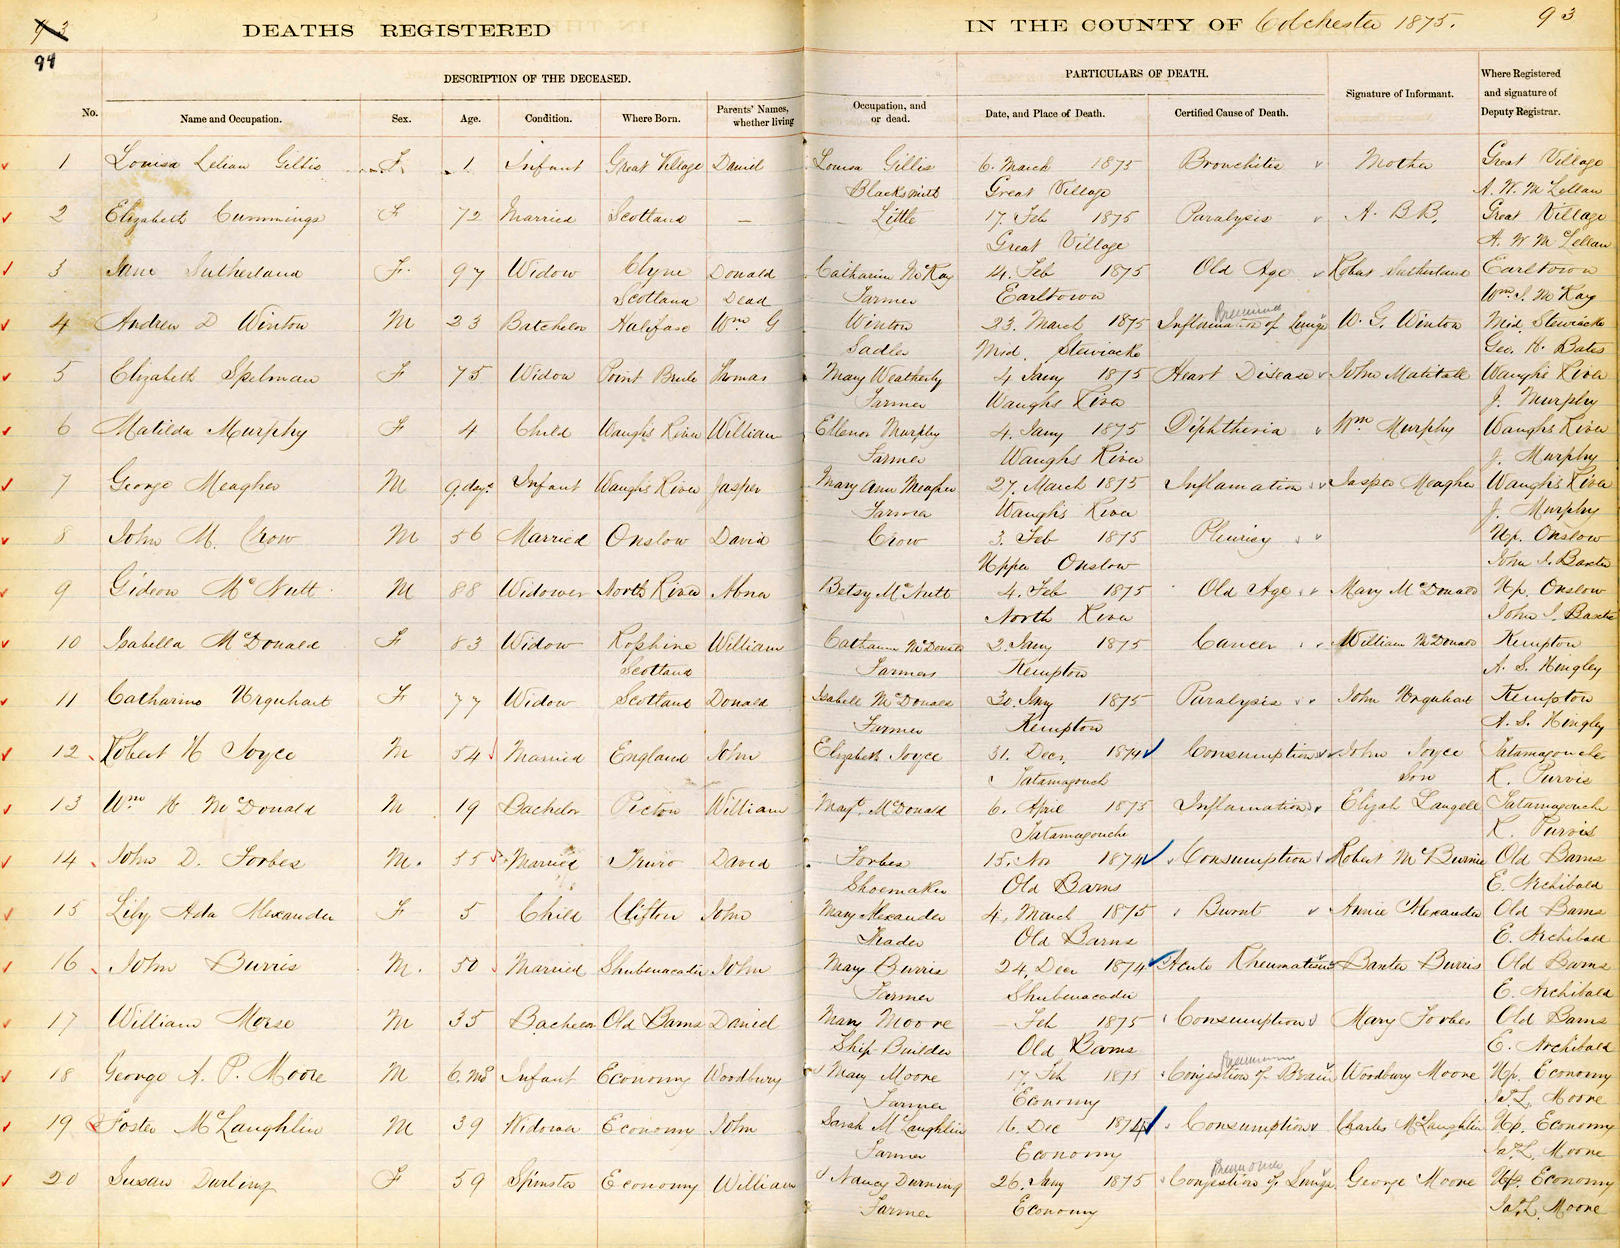 93
94
DEATHS REGISTERED IN THE COUNTY OF Colchester 1875. 93
DESCRIPTION OF THE DECEASED. PARTICULARS OF DEATH.
No. Name and Occupation. Sex. Age. Condition. Where Born. Parents' Names, whether living Occupation, and or dead. Date, and Place of Death. Certified Cause of Death. Signature of Informant. Where Registered and signature of Deputy Registrar.
1 Louisa Lelian Gillis F 1 Infant Great Village David Louisa Gillis 6. March 1875 Bronchitis Mother Great Village
Blacksmith Great Village A. W. McLellan
2 Elizabeth Cummings F 72 Married Scotland — Little 17. Feb 1875 Paralysis A. B B. Great Village
Great Village A. W McLellan
3 Jane Sutherland F. 97 Widow Clyne Donald Catharin McKay 4. Feb 1875 Old Age Robert Sutherland Earltown
Scotland Dead Farmer Earltown Wm. S. McKay
4 Andrew D Winton M 23 Batchelor Halifax Wm G Winton 23. March 1875 Inflamation of Lungs W. G. Winton Mid. Stewiacke
Sadler Mid. Stewiacke Geo. H. Bates
5 Elizabeth Spelman F 75 Widow Point Brule Thomas Mary Weatherby 4 Jany 1875 Heart Disease John Matitall Waughs River
Farmer Waughs River J. Murphy
6 Matilda Murphy F 4 Child Waughs River William Ellenor Murphy 4. Jany 1875 Diphtheria Wm Murphy Waughs River
Farmer Waughs River J. Murphy
7 George Meagher M 9. days Infant Waughs River Jasper Mary Ann Meagher 27. March 1875 Inflamation Jasper Meagher Waughs River
Farmer Waughs River J. Murphy
8 John M. Crow M 56 Married Onslow David Crow 3. Feb 1875 Pleurisy Up. Onslow
Upper Onslow John I. Baxter
9 Gideon McNutt M 88 Widower North River Abner Betsy McNutt 4. Feb 1875 Old Age Mary McDonald Up. Onslow
North River John I. Baxter
10 Isabella McDonald F 83 Widow Rosshire William Catharin McDonald 2. Jany 1875 Cancer William McDonald Kempton
Scotland Farmers Kempton A. S. Hingley
11 Catharine Urquhart F 77 Widow Scotland Donald Isabell McDonald 30. Jany 1875 Paralysis John Urquhart Kempton
Farmer Kempton A. S. Hingley
12 Robert H Joyce M 54 Married England John Elizabeth Joyce 31. Decr, 1874 Consumption John Joyce Tatamagouche
Tatamagouch Son R. Purvis
13 Wm H McDonald M 19 Bachelor Pictou William Mayt. McDonald 6. April 1875 Inflamation Elijah Langell Tatamagouche
Tatamagouche R. Purvis
14 John D. Forbes M. 55 Married Truro David Forbes 15. Nov 1874 Consumption Robert McBurnie Old Barns
Shoemaker Old Barns E. Archibald
15 Lily Ada Alexander F 5 Child Clifton John Mary Alexander 4, March 1875 Burnt Annie Alexander Old Barns
Trader Old Barns E. Archibald
16 John Burris M. 50 Married Shubenacadie John Mary Burris 24, Decr 1874 Acute Rheumatism Baxter Burris Old Barns
Farmer Shubenacadie E. Archibald
17 William Morse M 35 Bachelor Old Barns Daniel Mary Moore — Feb 1875 Consumption Mary Forbes Old Barns
Ship-Builder Old Barns E. Archibald
18 George A. P. Moore M 6. Mos Infant Economy Woodbury Mary Moore 17, Feb 1875 Congestion of Brain Woodbury Moore Up. Economy
Farmer Economy Jas. L. Moore
19 Foster McLaughlin M 39 Widower Economy John Sarah McLaughlin 16. Dec 1874 Consumption Charles McLaughlin Up. Economy
Farmer Economy Jas. L. Moore
20 Susan Durling F 59 Spinster Economy William Nancy Durning 26. Jany 1875 Congestion of Lungs. George Moore Up. Economy
Farmer Economy Jas. L. Moore